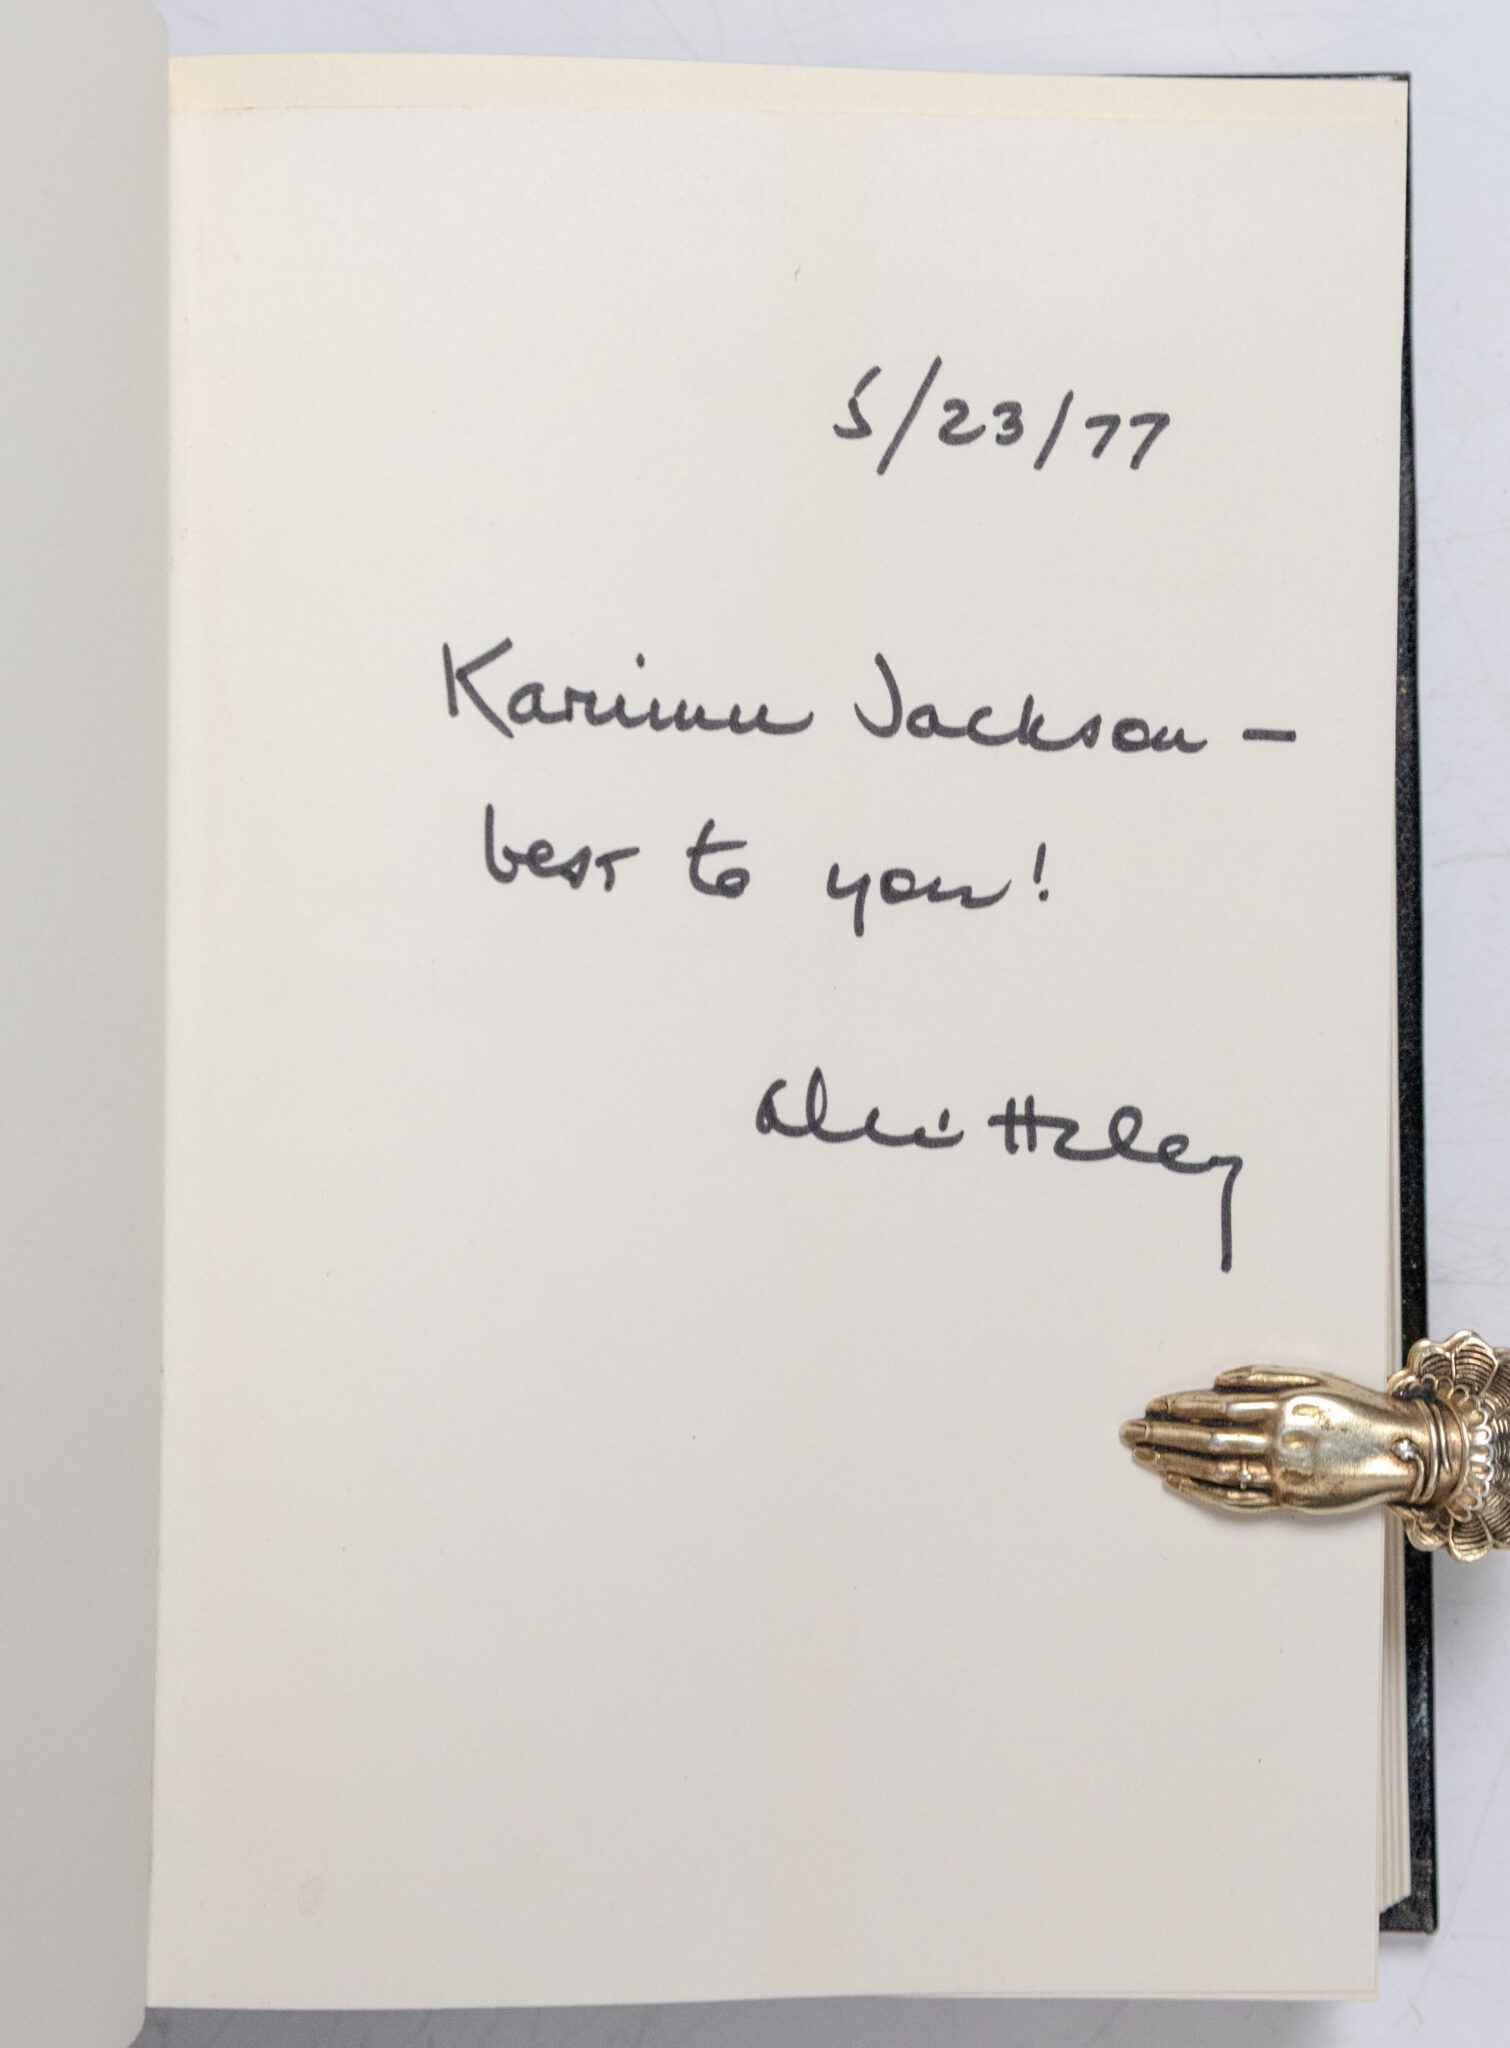 5/23/77
Karimu Jackson –
best to you!
Alex Haley